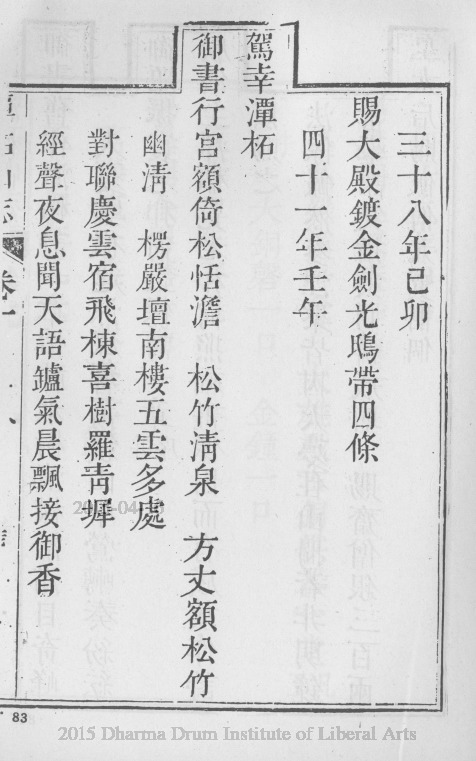 三十八年己卯
賜大殿鍍金劍光鴟帶四條
四十一年壬午
駕幸潭柘
御書行宮額倚松恬澹 松竹清泉 方丈額松竹
幽清 楞嚴壇南樓五雲多處
對聯慶雲宿飛棟喜樹羅青墀
經聲夜息聞天語鑪氣晨飄接御香
卷一
83
2015 Dharma Drum Institute of Liberal Arts